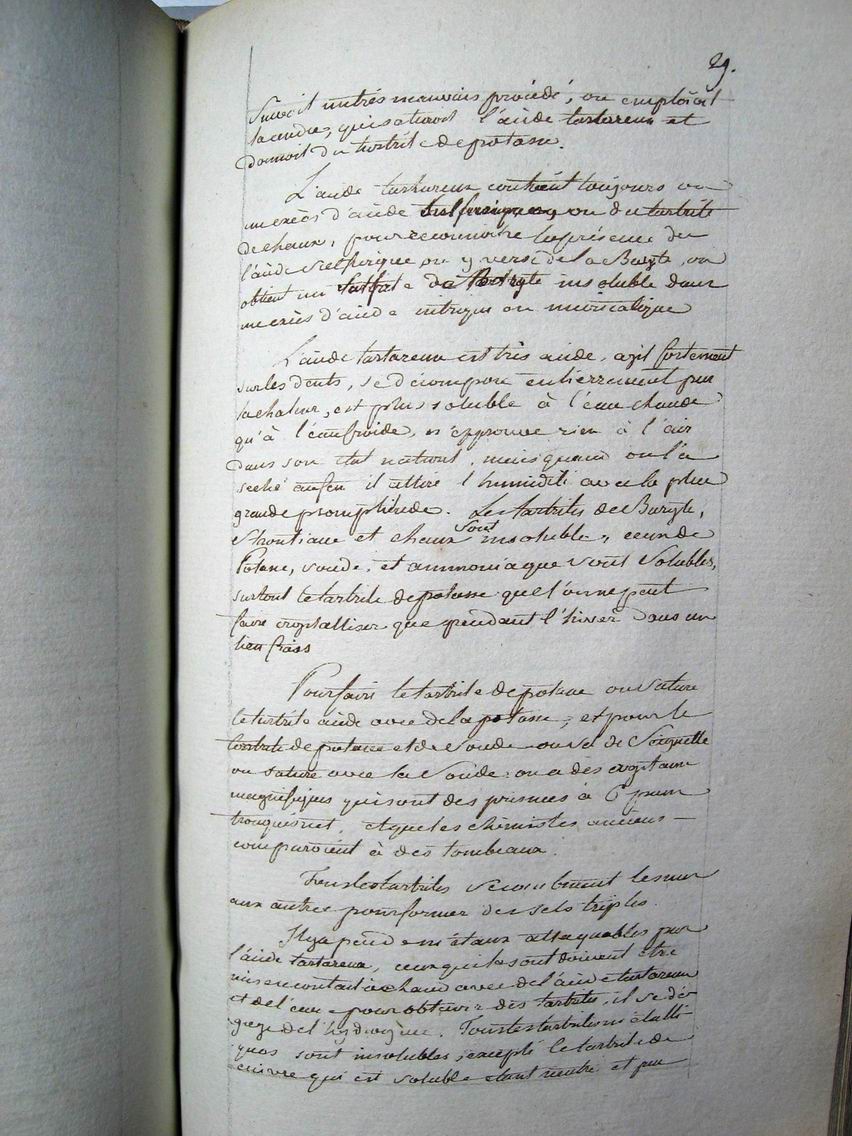 29.
Suivoit un très mauvais procédé, on emploioit
la cendre, qui saturoit l'acide tartareux et
donnoit du tartrite de potasse.
L'acide tartareux contient toujours ou
un excès d'acide sulfurique ou du tartrite
de chaux, pour reconnoitre la présence de
l'acide sulfurique on y verse de la Baryte, on
obtient un Sulfate de Baryte insoluble dans
un excès d'acide nitrique ou muriatique
L'acide tartareux est très acide, agit fortement
sur les dents, se décompose entierrement par
la chaleur, est plus soluble à l'eau chaude
qu'à l'eau froide, n'éprouve rien à l'air
dans son état naturel, mais quand on l'a
seché au feu il attire l'humidité avec la plus
grande promptitude. Les tartrites de Baryte,
Strontiane et chaux sont insolubles, ceux de
Potasse, soude, et ammoniaque sont solubles,
surtout le tartrite de potasse que l'on ne peut
faire crystalliser que pendant l'hiver dans un
lieu frais
Pour faire le tartrite de potasse on sature
le tartrite acide avec de la potasse, et pour le
tartrite de potasse et de soude ou sel de Seignette
on sature avec la soude on a des crystaux
magnifiques qui sont des prismes à 6 pans
tronqués net, et que les chimistes anciens
comparoient à des tombeaux.
Tous les tartrites se combinent les uns
aux autres pour former des sels triples.
Il y a peu de métaux attaquables par
l'acide tartareux, ceux qui le sont doivent être
mis en contact à chaud avec de l'acide tartareux
et de l'eau pour obtenir des tartrites, il se dé-
gage de l'hydrogène. Tous les tartrites métalli-
ques sont insolubles, excepté le tartrite de
cuivre qui est soluble étant neutre et par